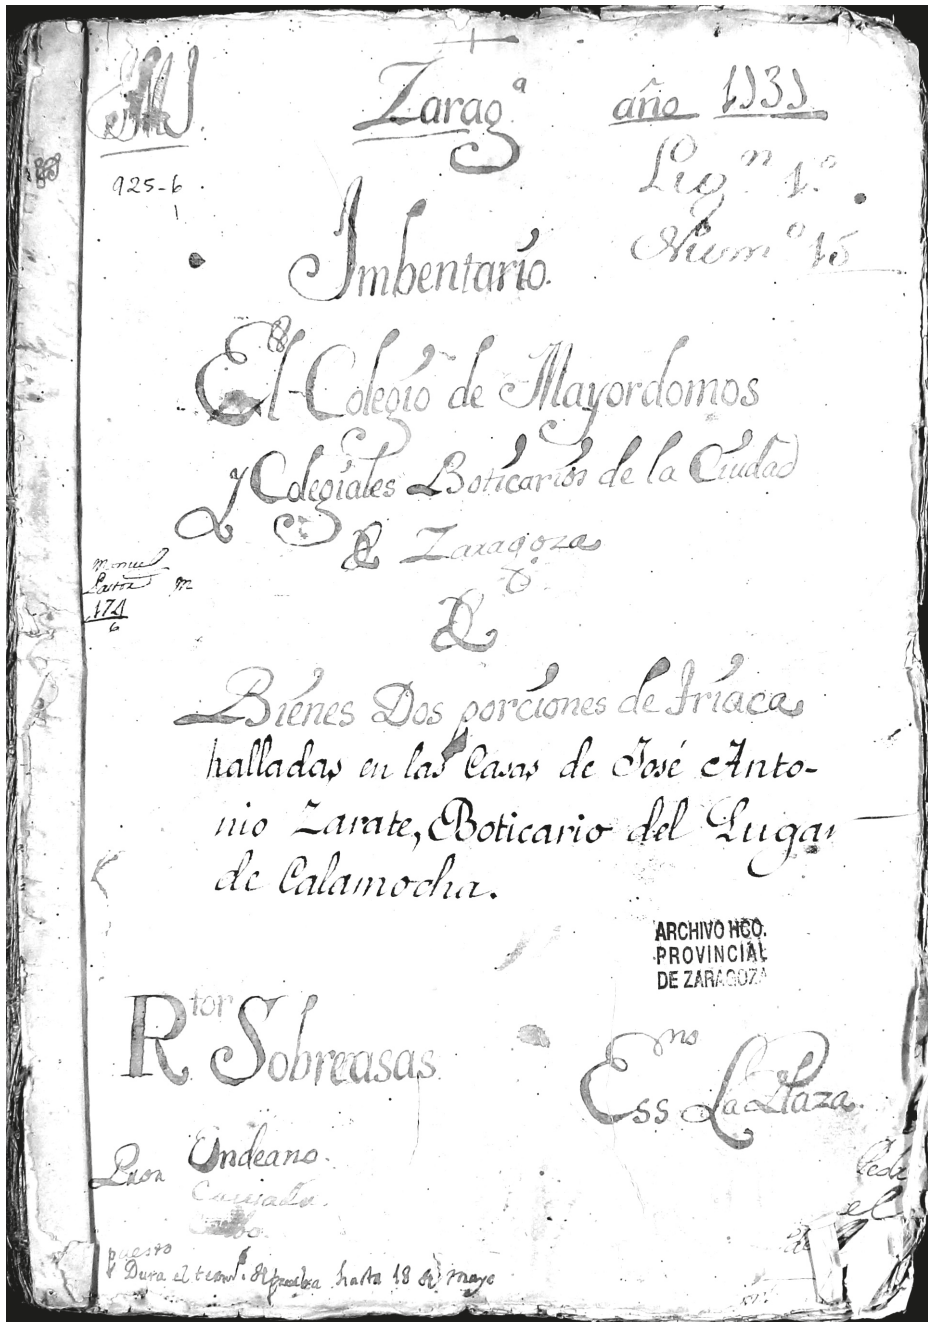 Zarag.ª año 1731
925-6
1
Lig.n 1.º
Num.º 15
Imbentario.
El Colegio de Mayordomos
y Colegiales Boticarios de la Ciudad
de Zaragoza
De
Manuel
Pastor m
174
6
Bienes Dos porciones de Triaca
halladas en las Casas de José Anto-
nio Zarate, Boticario del Lugar
de Calamocha.
ARCHIVO HCO.
PROVINCIAL
DE ZARAGOZA
Rtor Sobreasas
Essno La Plaza.
Undeano.
puesto
Dura el hasta 18 de mayo